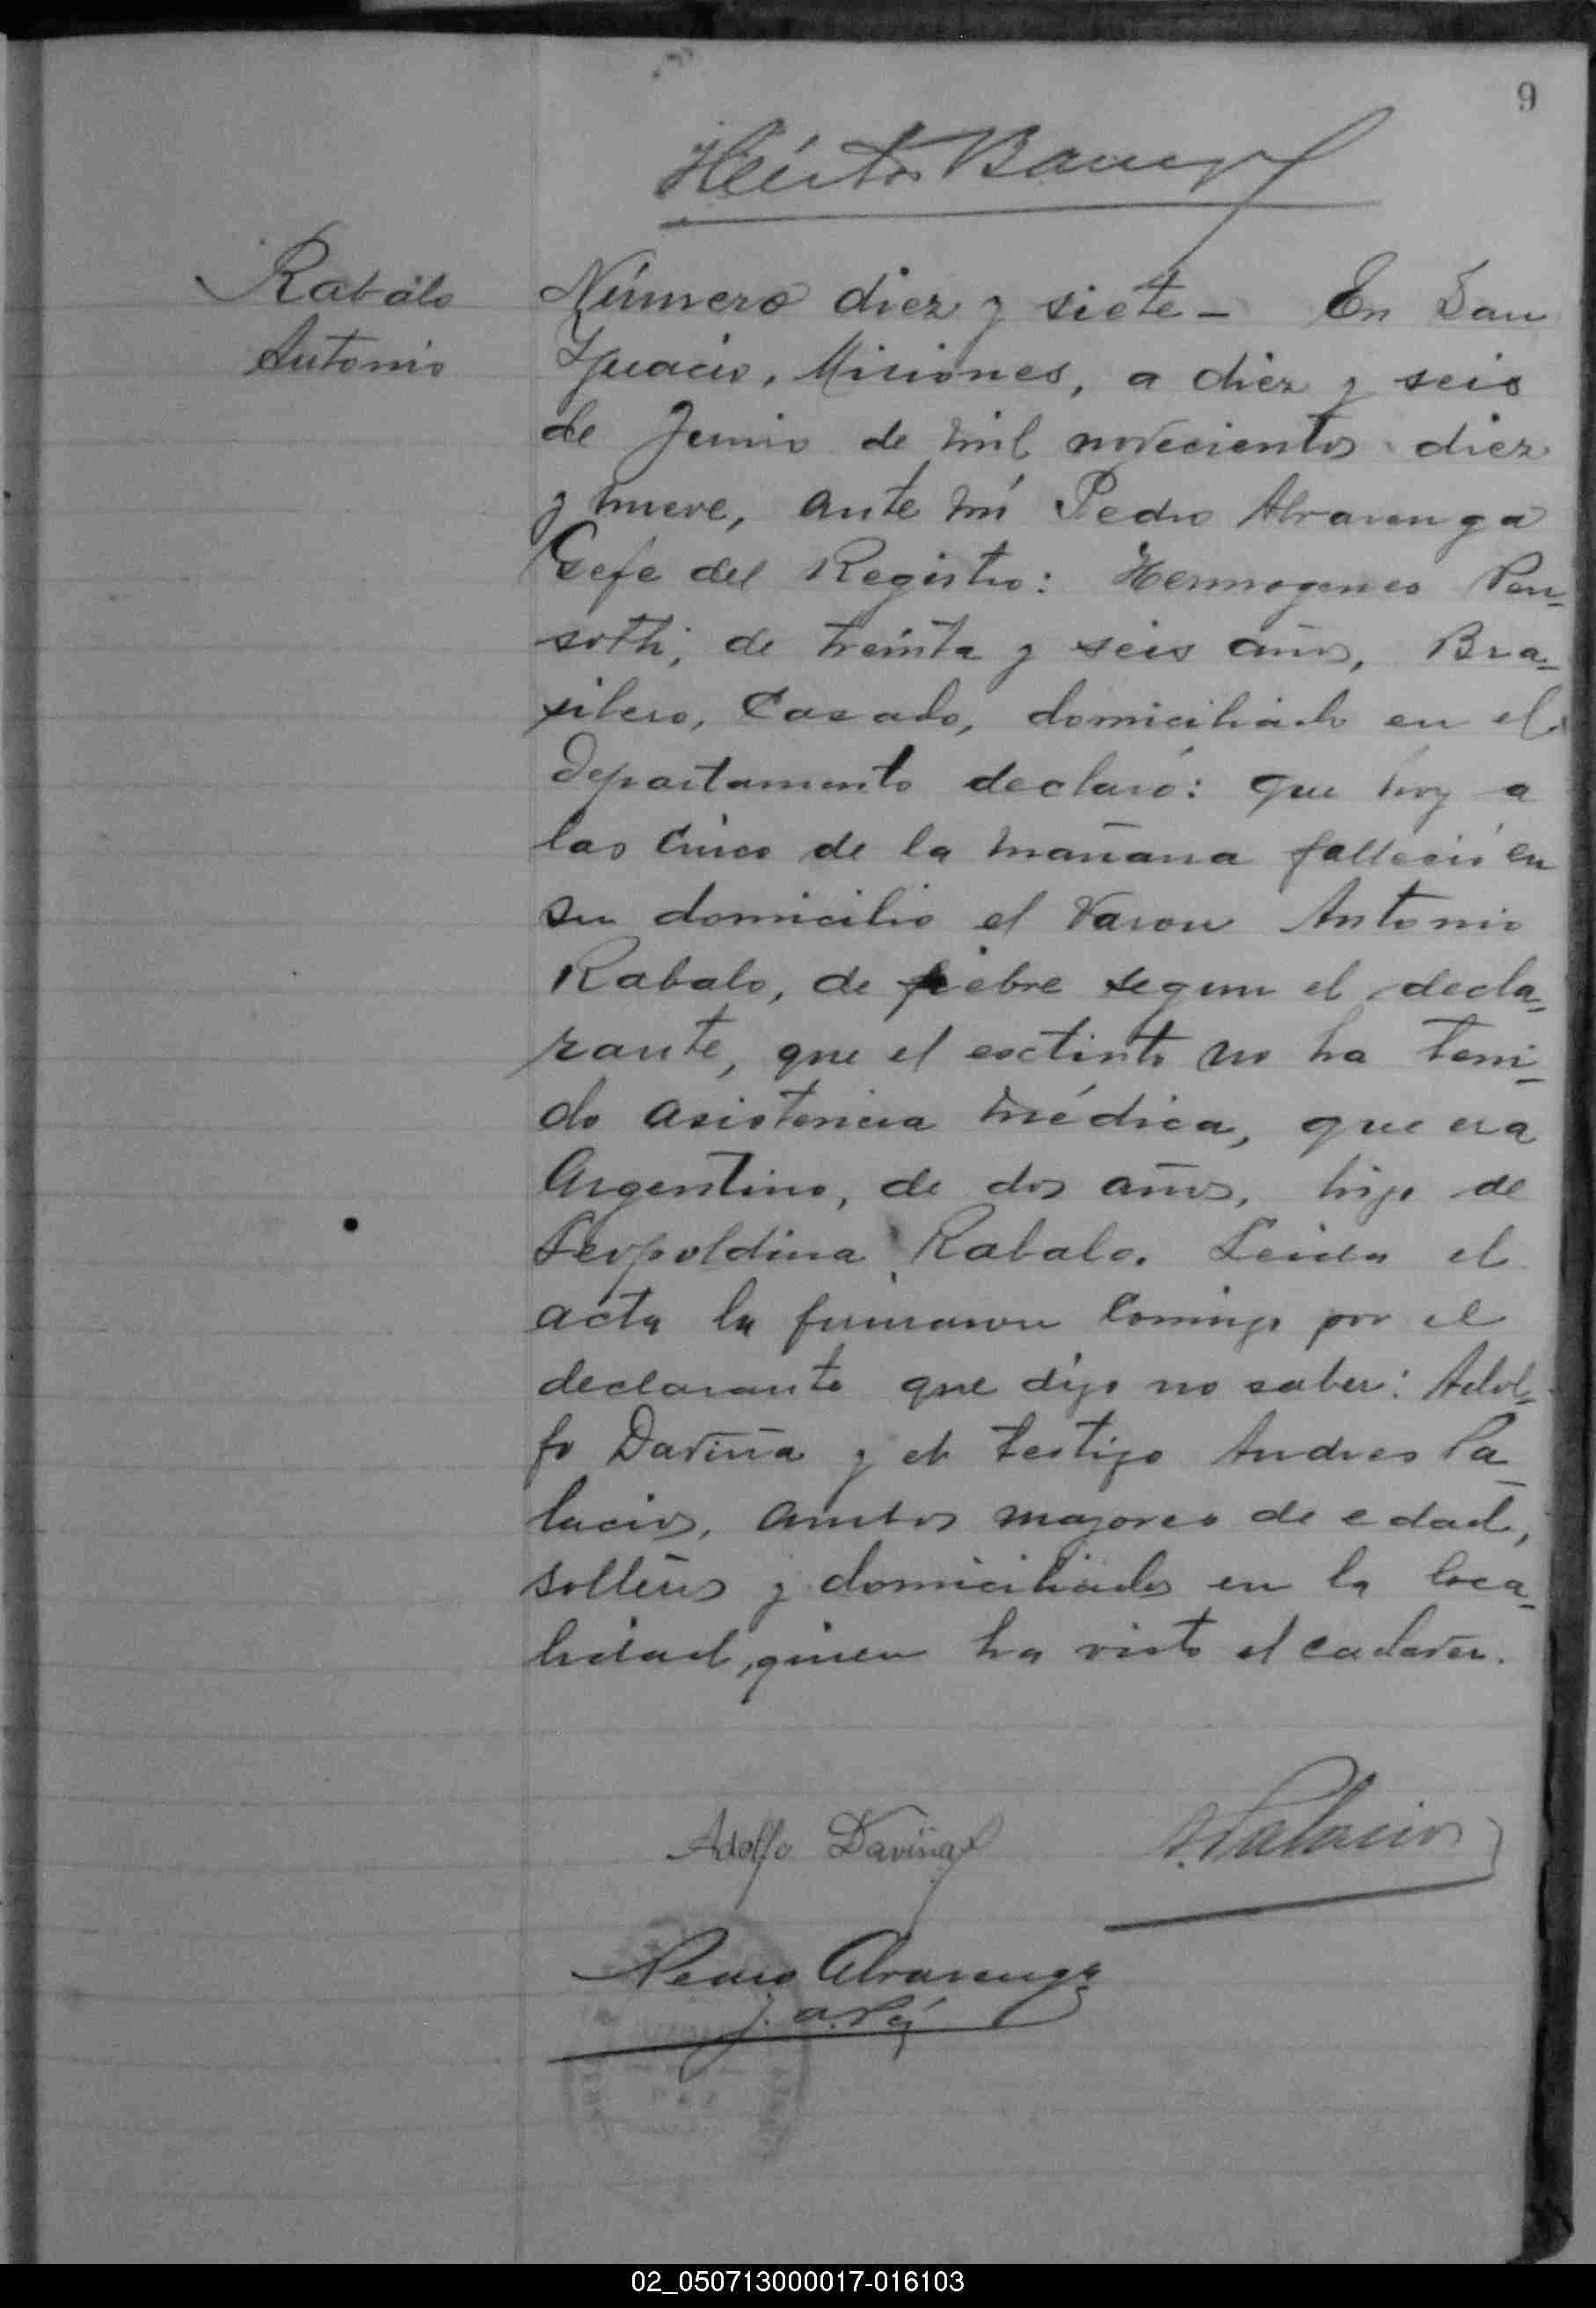 9
Héctor
Rabalo
Antonio
Número diez y siete - En San
Ygnacio, Misiones, a diez y seis
de Junio de mil novecientos diez
y nueve, ante mí Pedro Alvarenga
Gefe del Registro: Hermogenes Pen-
sotti, de treinta y seis años, Bra-
silero, Casado, domiciliado en el
Departamento declaró: que hoy a
las cinco de la mañana falleció en
su domicilio el Varon Antonio
Rabalo, de fiebre segun el decla-
rante, que el esctinto no ha teni-
do asistencia médica, que era
Argentino, de dos años, hijo de
Leopoldina Rabalo. Leida el
acta la firmaron conmigo por el
declarante que dijo no saber: Adol-
fo Daviña y el testigo Andres Pa-
lacios, ambos mayores de edad,
solteros y domiciliados en la loca-
lidad, quien ha visto el cadaver.
Adolfo Daviña
A. Palacios
Pedro Alvarenga
02_050713000017-016103